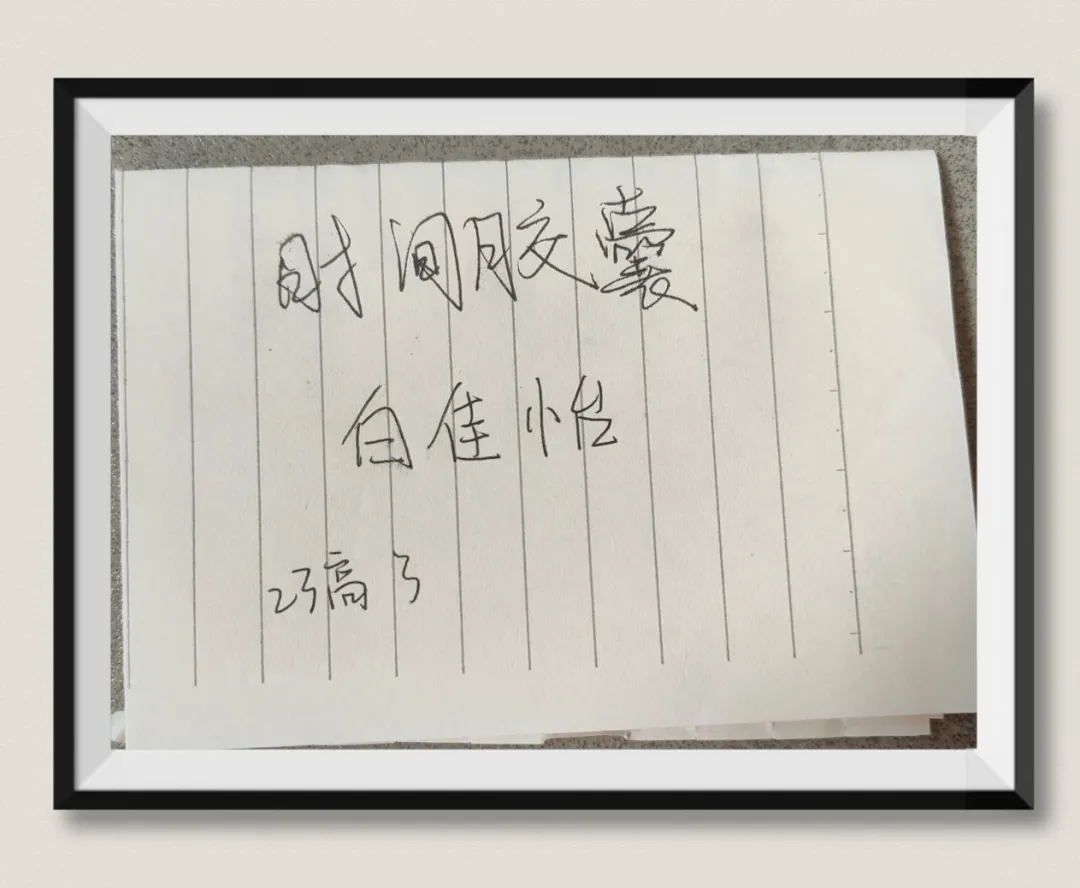 时间胶囊
白佳怡
23高3